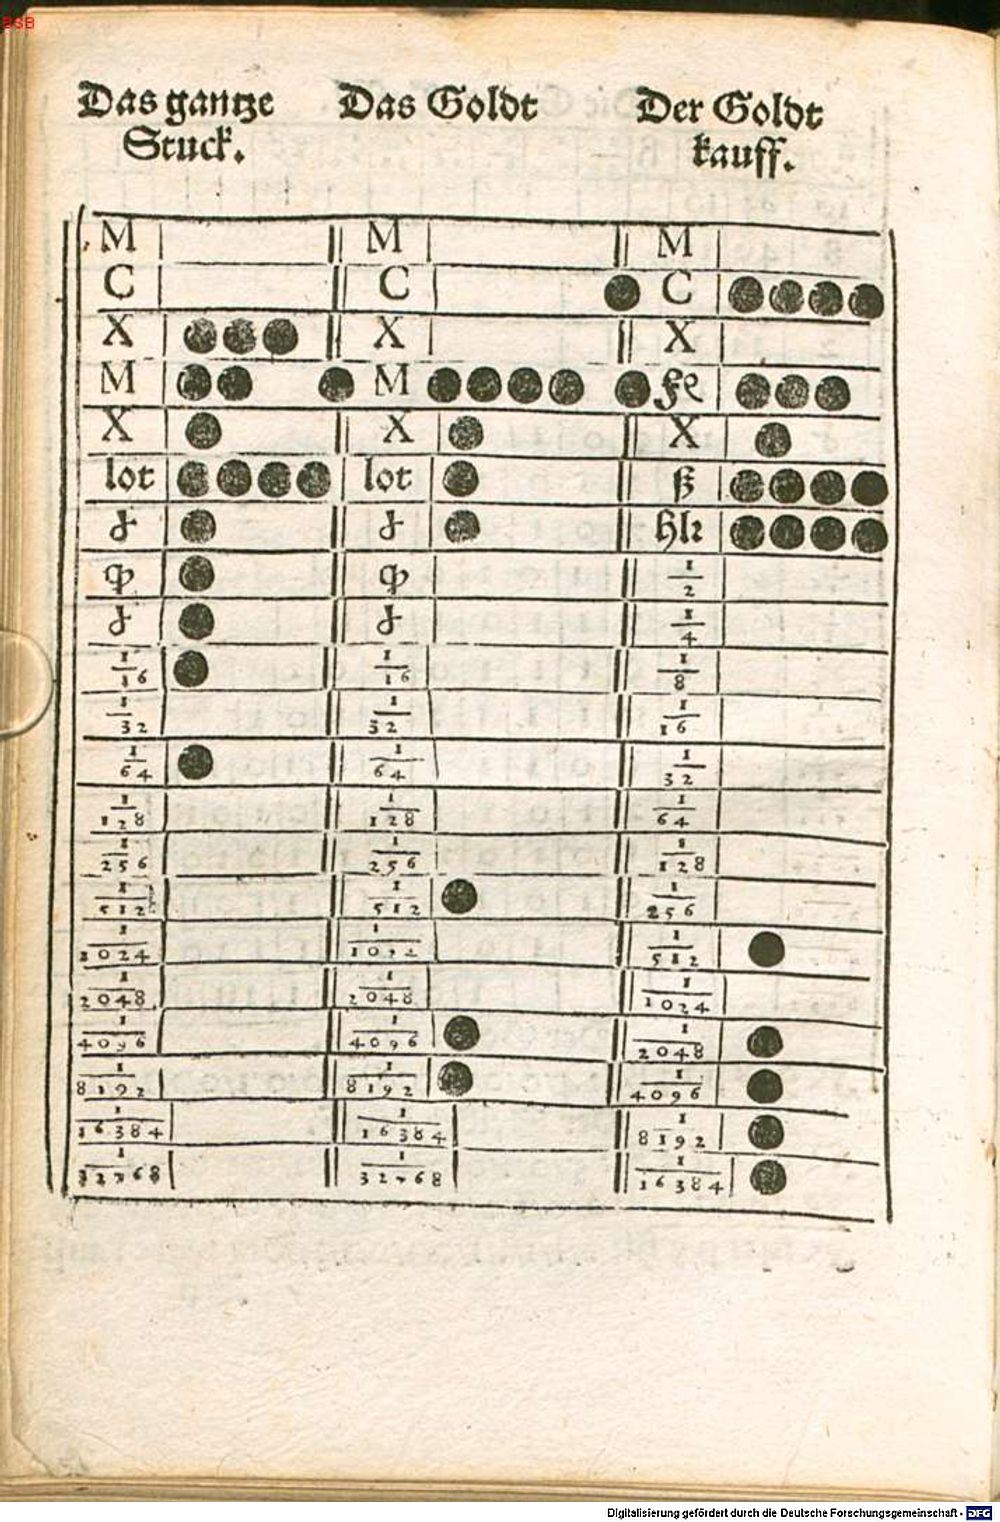 BSB
Das gantze Das Goldt Der Goldt
Stuck. kauff.
M M M
C C C
X X X
M M fl
X X X
lot lot ß
₰ ₰ hlr
qͥ qͥ 1/2
₰ ₰ 1/4
1/16 1/16 1/8
1/32 1/32 1/16
1/64 1/64 1/32
1/128 1/128 1/64
1/256 1/256 1/128
1/512 1/512 1/256
1/1024 1/1024 1/512
1/2048 1/2048 1/1024
1/4096 1/4096 1/2048
1/8192 1/8192 1/4096
1/16384 1/16384 1/8192
1/32768 1/32768 1/16384
Digitalisierung gefördert durch die Deutsche Forschungsgemeinschaft - DFG